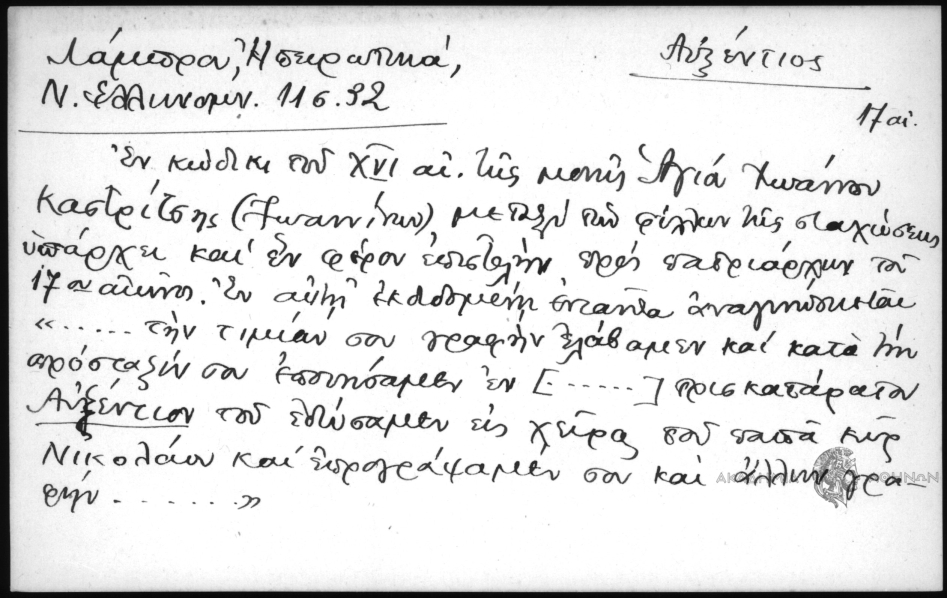 Λάμπρου, Ἠπειρωτικά,
Αὐξέντιος
Ν. Ἑλληνομν. 11 σ. 92
17 αἰ.
Ἐν κώδικι τοῦ XVI αἰ. τῆς μονῆς Ἁγίου Ἰωάννου
Καστρίτσης (Ἰωαννίνων) μεταξὺ τῶν φύλλων τῆς σταχώσεως
ὑπάρχει καὶ ἓν φέρον ἐπιστολὴν πρὸς πατριάρχην τοῦ
17ου αἰῶνος. Ἐν αὐτῇ ἐκδιδομένῃ ἐνταῦθα ἀναγινώσκεται
«...... τὴν τιμίαν σου γραφὴν ἐλάβαμεν καὶ κατὰ τὴν
πρόσταξίν σου ἐποιήσαμεν ἐν [......] τρισκατάρατον
Αὐξέντιον τοῦ ἐδώσαμεν εἰς χεῖρας τοῦ παπᾶ κὺρ
Νικολάου καὶ ἐπρογράψαμέν σου καὶ ἄλλην γρα-
φήν ........»
ΑΚΑΔΗΜΙΑ ΑΘΗΝΩΝ